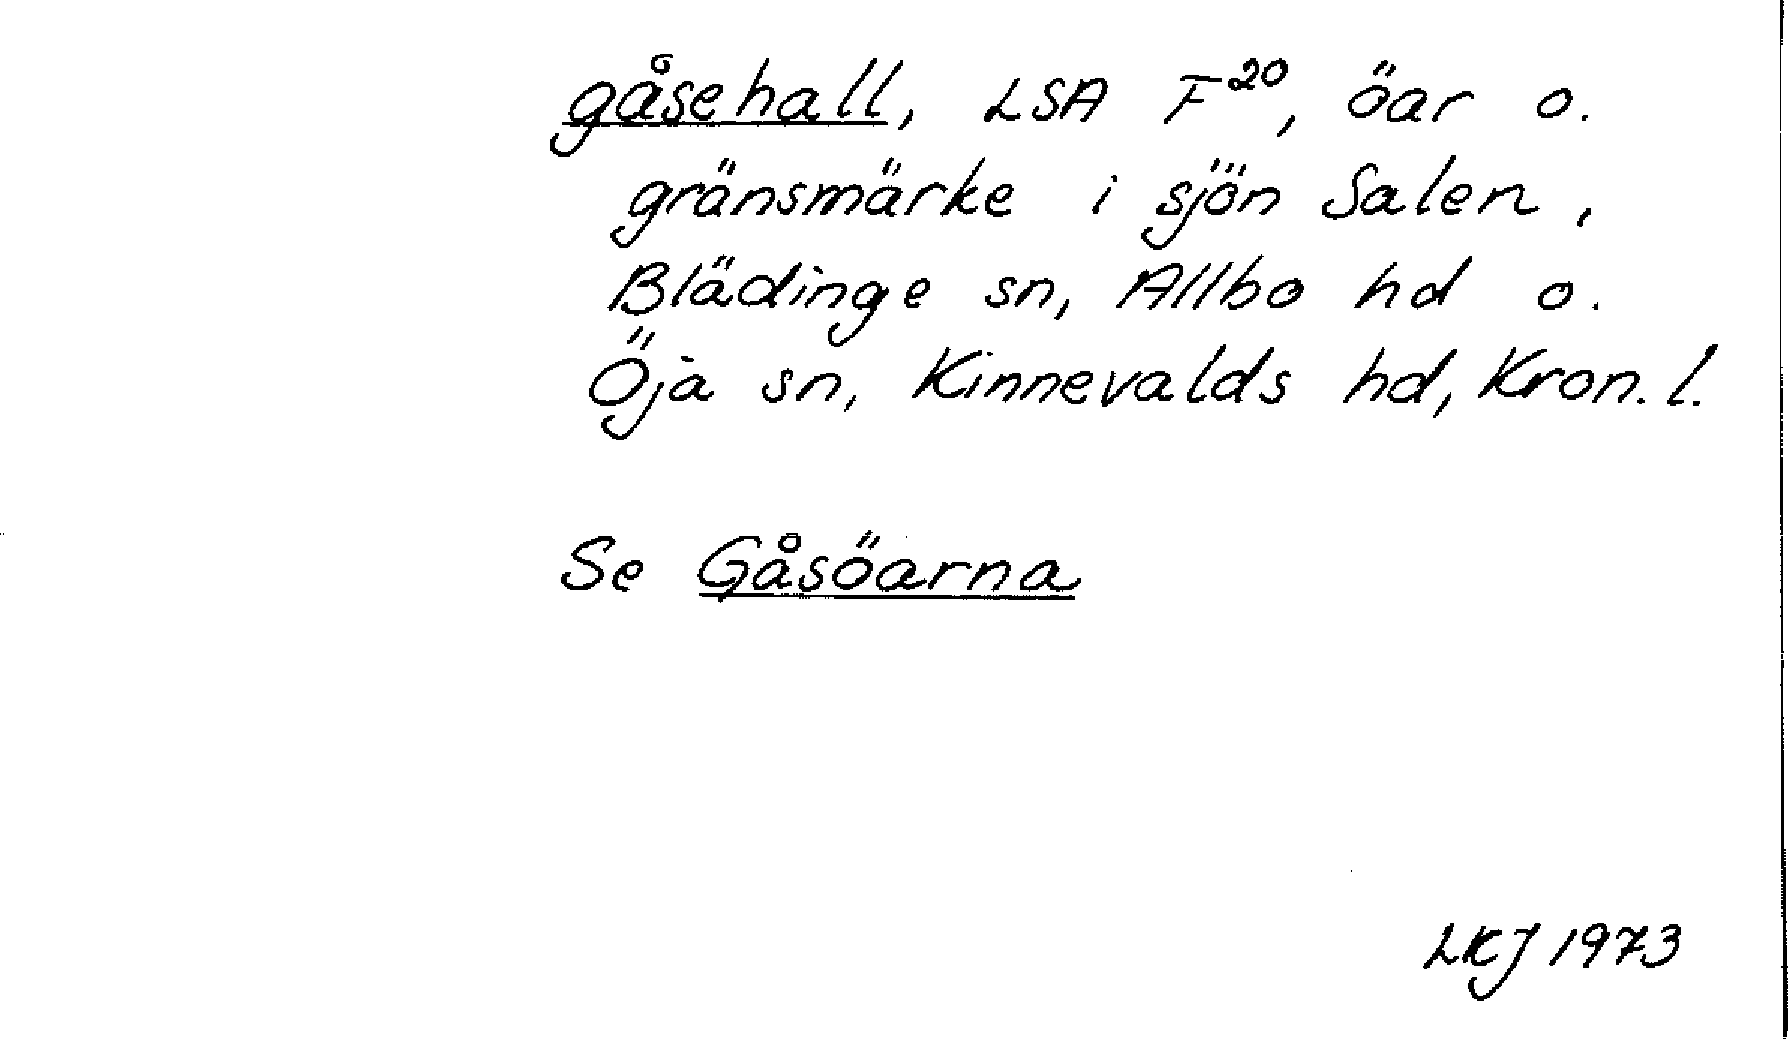 gåsehall, LSA F²⁰, öar o.
gränsmärke i sjön Salen,
Blädinge sn, Allbo hd o.
Öja sn, Kinnevalds hd, Kron. l.
Se Gåsöarna
LKJ 1973